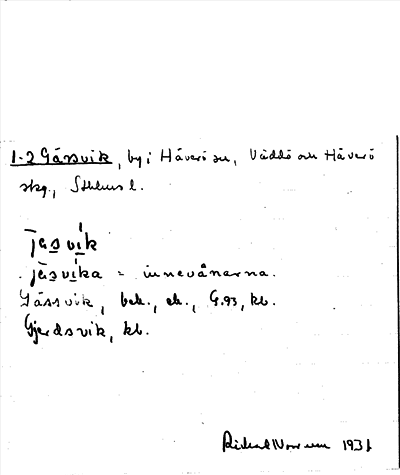 1-2 Gåssvik, by i Häverö sn, Väddö och Häverö
skg., Sthlms l.
jäsvik
jäsvika = innevånarna.
Gåssvik, bek., ek., G.93, kb.
Gjerdsvik, kb.
1931